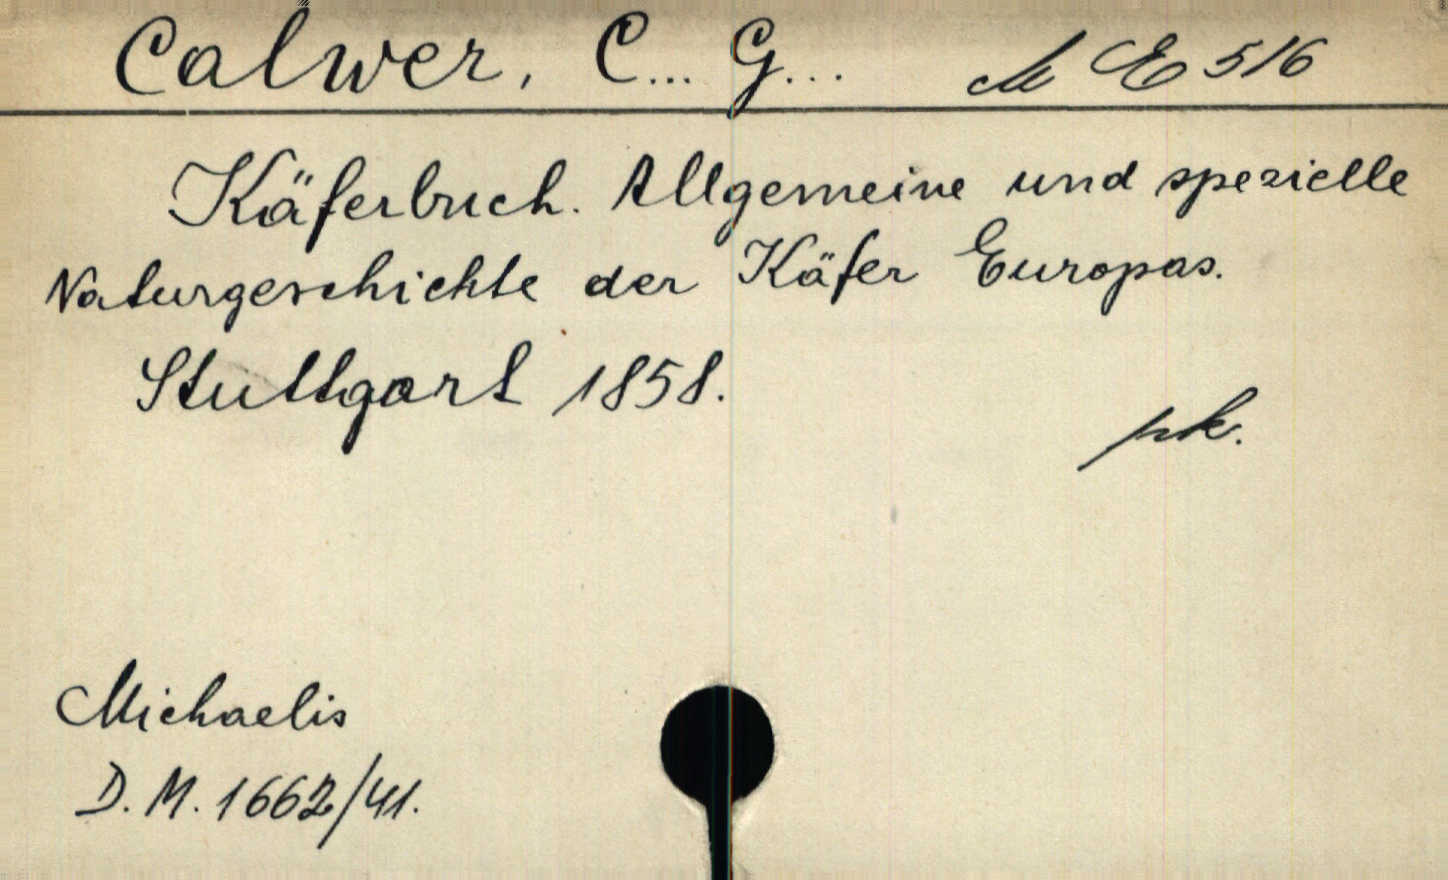 Calwer, C... G... M E 516
Käferbuch. Allgemeine und spezielle
Naturgeschichte der Käfer Europas.
Stuttgart 1858.
pk.
Michaelis
D. M. 1662/41.